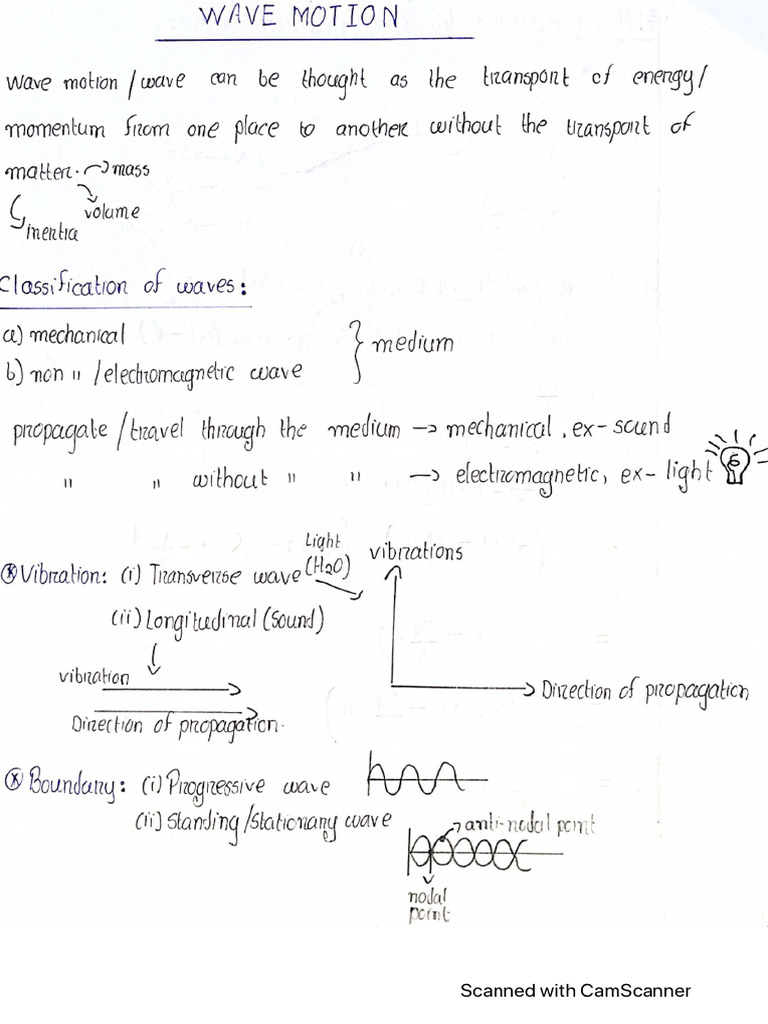 WAVE MOTION
Wave motion/wave can be thought as the transport of energy/
momentum from one place to another without the transport of
matter. → mass
volume
inertia
Classification of waves:
a) mechanical
b) non " /electromagnetic wave
} medium
propagate/travel through the medium → mechanical, ex- sound
" " without " " → electromagnetic, ex- light
Light
(H2O)
vibrations
⊗ Vibration: (i) Transverse wave
(ii) Longitudinal (Sound)
vibration
Direction of propagation.
Direction of propagation
⊗ Boundary: (i) Progressive wave
(ii) Standing/stationary wave
anti-nodal point
nodal
point
Scanned with CamScanner